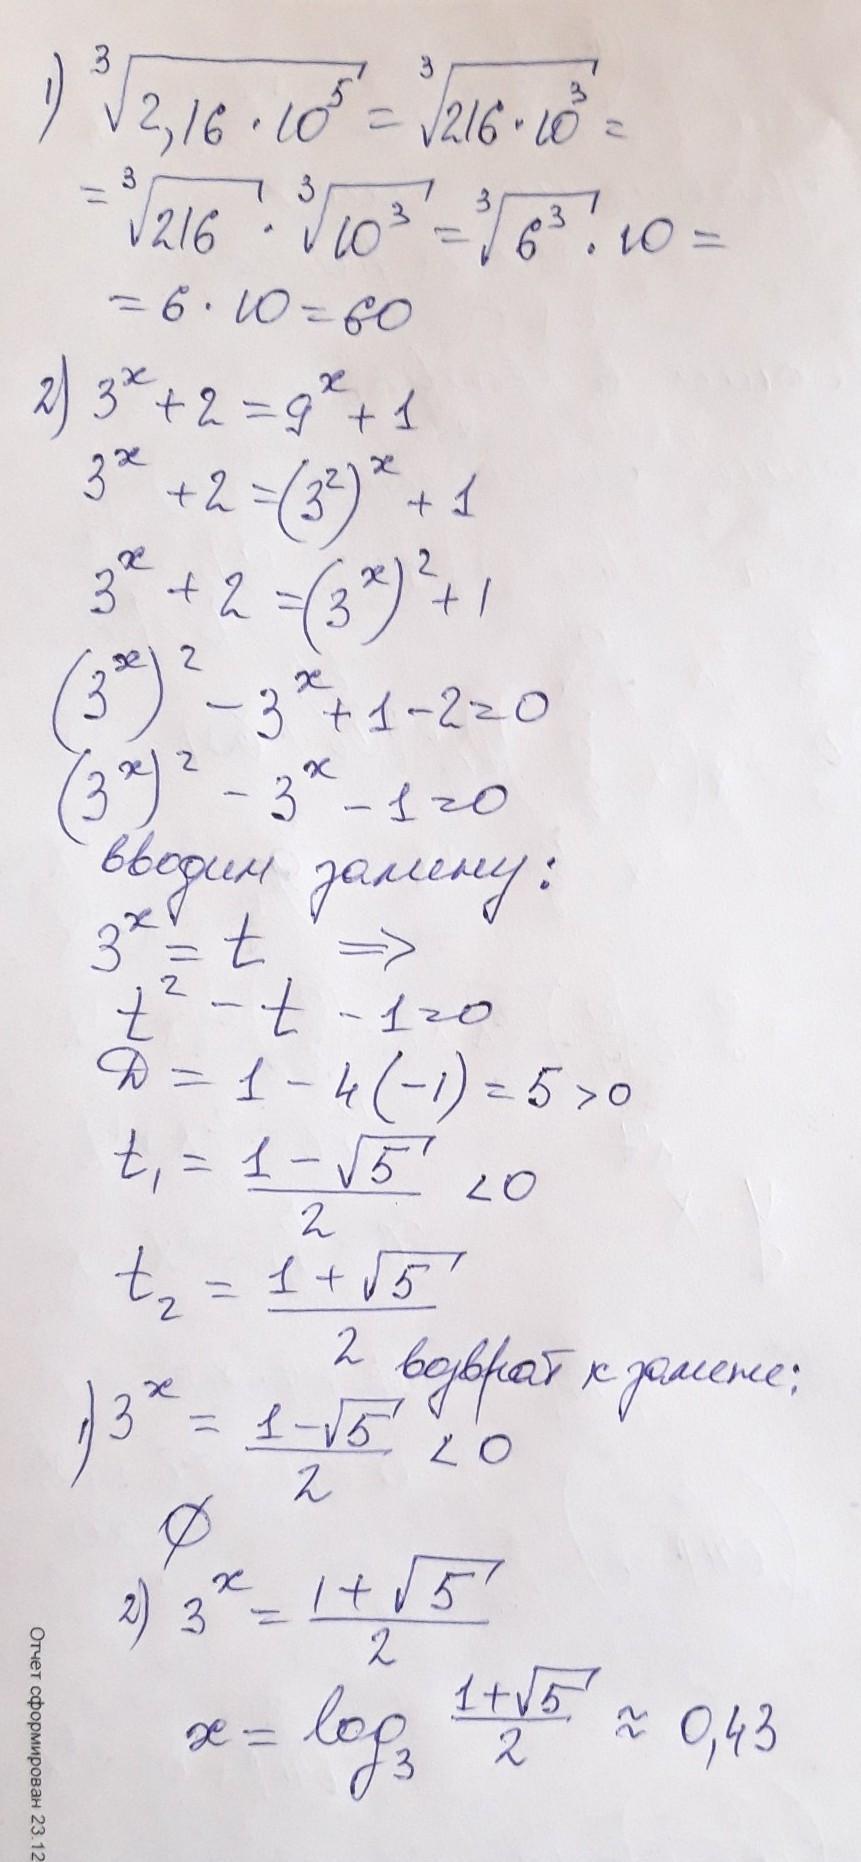 1) ∛(2,16 · 10⁵) = ∛(216 · 10³) =
= ∛216 · ∛(10³) = ∛(6³) · 10 =
= 6 · 10 = 60
2) 3ˣ + 2 = 9ˣ + 1
3ˣ + 2 = (3²)ˣ + 1
3ˣ + 2 = (3ˣ)² + 1
(3ˣ)² - 3ˣ + 1 - 2 = 0
(3ˣ)² - 3ˣ - 1 = 0
вводим замену:
3ˣ = t ⇒
t² - t - 1 = 0
D = 1 - 4(-1) = 5 > 0
t₁ = (1 - √5)/2 < 0
t₂ = (1 + √5)/2
возврат к замене:
1) 3ˣ = (1 - √5)/2 < 0
∅
2) 3ˣ = (1 + √5)/2
x = log₃ (1 + √5)/2 ≈ 0,43
Отчет сформирован 23.12